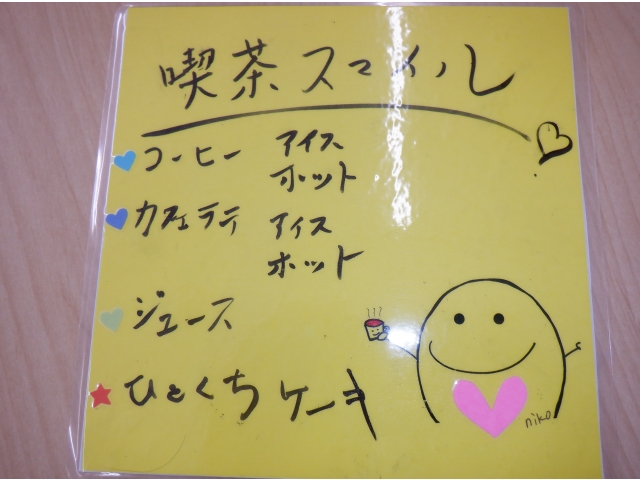 喫茶スマイル
コーヒー アイス
ホット
カフェラテ アイス
ホット
ジュース
ひとくちケーキ
niko